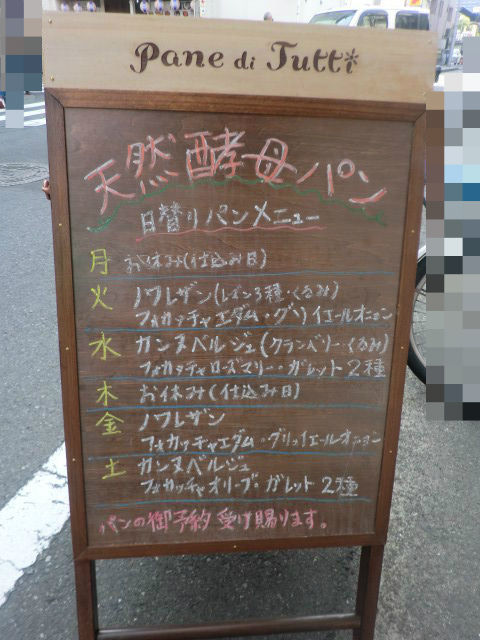 Pane di Tutti
天然酵母パン
日替りパンメニュー
月 お休み(仕込み日)
火 ノワレザン(レーズン3種・くるみ)
フォカッチャエダム・グリイエールオニオン
水 カンヌベルジュ(クランベリー・くるみ)
フォカッチャローズマリー・ガレット2種
木 お休み(仕込み日)
金 ノワレザン
フォカッチャエダム・グリッイエールオニオン
土 カンヌベルジュ
フォカッチャオリーブ・ガレット 2種
パンの御予約 受け賜ります。